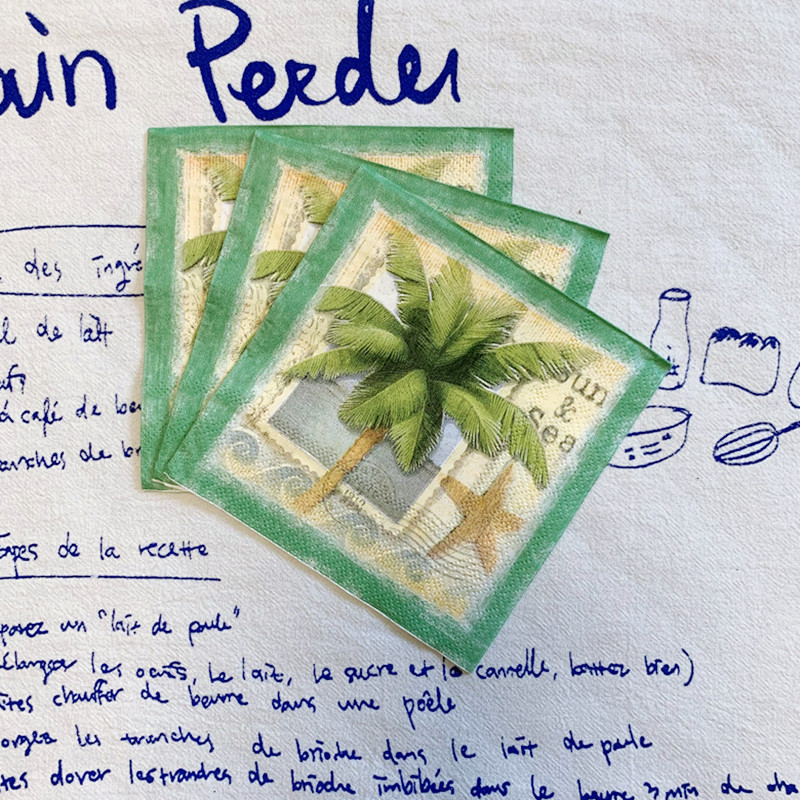 ain Perdu
Sun
&
Sea
des ingré
l de lait
à café de beu
anches de br
tapes de la recette
parez un "lait de poule"
élangser les oeufs, le lait, le sucre et la cannelle, battez bien)
ites chauffer de beurre dans une poêle
ongez les tranches de brioche dans le lait de poule
tes dorer les tranches de brioche imbibées dans le beurre 3 min de cha